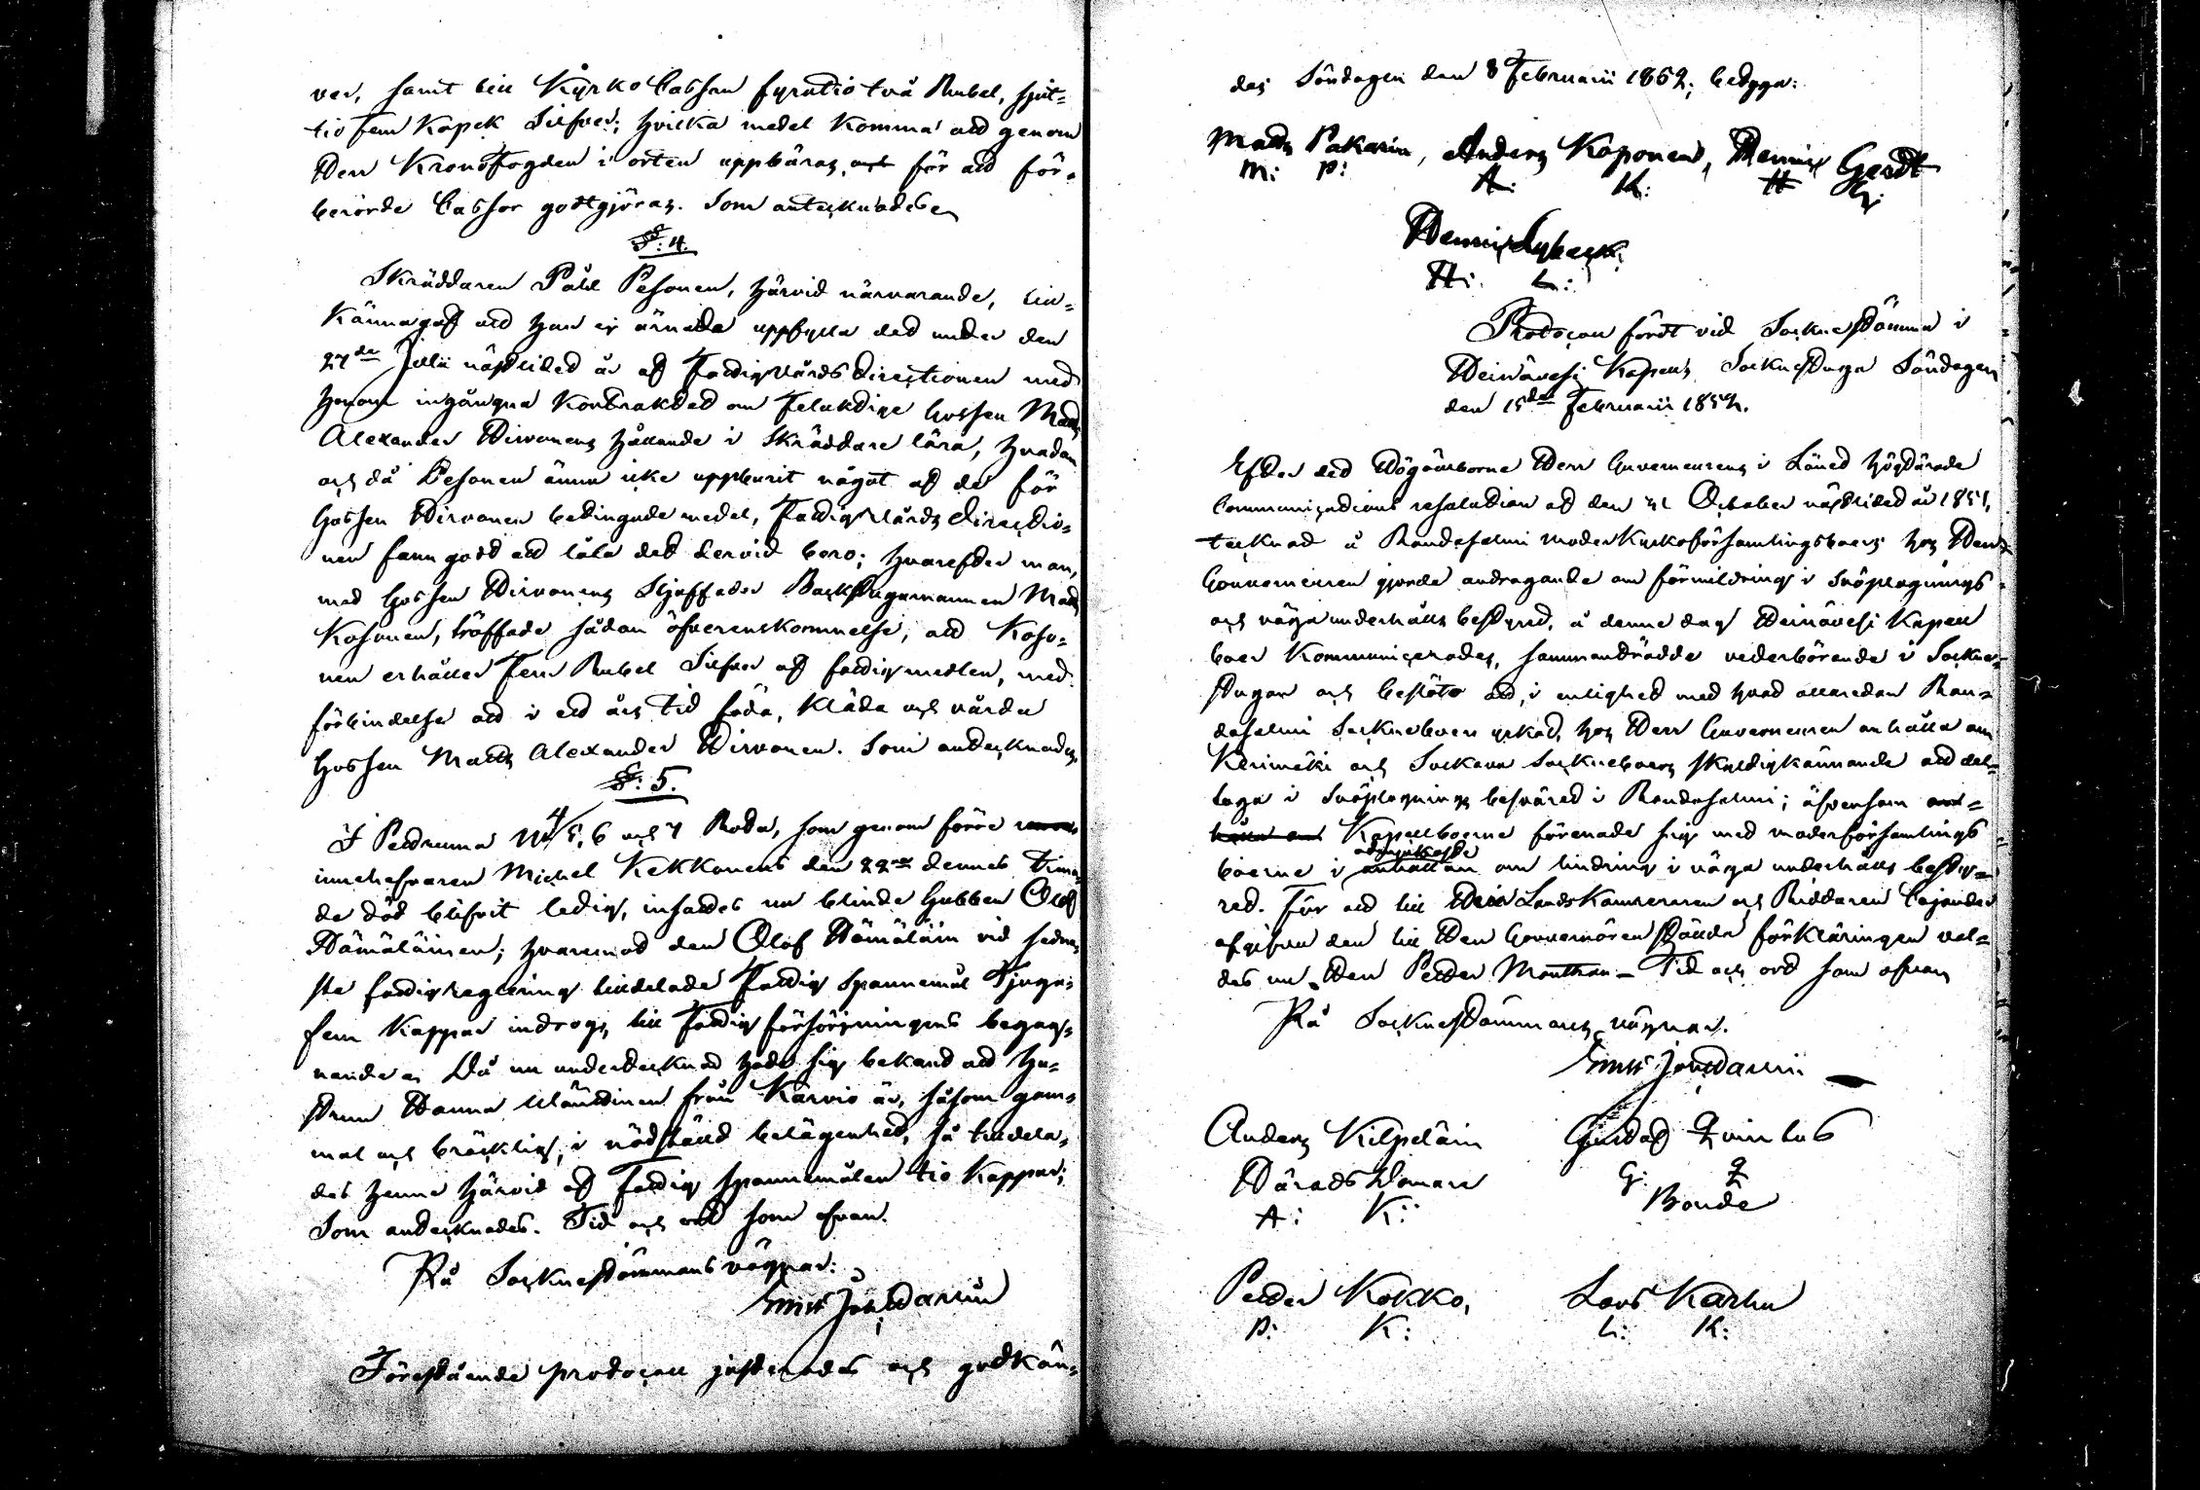 ver, samt till Kyrko Cassan fyratio två Rubel, sjut-
tio fem Kopek Silfver; hvilka medel komma att genom
Herr Kronofogden i orten uppbäras, och för att för-
berörde Cassor godtgöras. Som antecknades
§: 4.
Skräddaren Påhl Pesonen, härvid närvarande, till-
kännagaf att han ej ärnade uppfylla det under den
27de Julii nästlidet år af Fattigvårds directionen med
honom ingångna Kontraktet om Gossen Matts
Alexander Hirvonens hållande i Skräddare lära, hvadan
och då Pesonen ännu icke uppburit något af de för
Gossen Hirvonen betingade medel, Fattigvårds Directio-
nen fann godt att låta det dervid bero; hvarefter man,
med Gossen Hirvonens Styffader Backstugumannen Matts
Kosonen, träffade sådan öfverenskommelse, att Koso-
nen erhåller Fem Rubel Silfver af fattigmedlen, med
förbindelse att i ett års tid föda, kläda och vårda
Gossen Matts Alexander Hirvonen. Som antecknades.
§: 5.
I Pedrenna No 4/5, 6 och 7 Rota, som genom förre
innehafvaren Michel Kekkonens den 22ne dennes Tima-
de död blifvit ledig, insattes nu blinde Gubben Olof
Hämäläinen; hvaremot den Olof Hämäläin vid sedna-
ste fattigreglering tilldelade Fattig Spannemål Tjugu-
fem Kappar indrogs till Fattigförsörjningens begag-
nande. Då nu undertecknad hade sig bekant att Hu-
strun Hanna från Karvio är, såsom gam-
mal och bräcklig, i nödställd belägenhet, så tilldela-
des henne härvid af Fattig spannemålen tio Kappar;
Som antecknades. Tid och ort som ofvan.
På Sockenstämmans vägnar:
Förestående protocoll justerades och godkän-
des Söndagen den 8 Februarii 1852; betyga:
Matts Pakarin, Anders Kaponen, Henric Gerdt
M: P: A: K: H G:
Henric Lybeck
H: L:
Protocoll fördt vid Sockenstämma i
Heinävesi Kapells Sockenstuga Söndagen
den 15de Februarii 1852.
Efter det Högvälborne Herr Guverneurens i Länet högtärade
Communications resolution af den 21 October nästlidet år 1851,
tecknad å Randasalmi moderkyrkoförsamlingsboers hos Herr
Gouverneuren gjorde andragande om förmildring i snöplognings-
och vägaunderhålls bestyret, å denne dag Heinävesi Kapell
boer kommunicerades, sammanträdde vederbörande i Socken-
stugan och beslöto att, i enlighet med hvad allaredan Ran-
dasalmi Sockneboer yrkat, hos Herr Guverneuren anhålla om
Kerimäki och Sockneboers skyldigkännande att del-
taga i Snöplognings besväret i Randasalmi; äfvensom
Kapellboerne förenade sig med moderförsamlings
boerne i anhållan om lindring i väga underhålls besty-
ret. För att till Herr LandsKamreraren och Riddaren Cajander
afgifva den till Herr Gouvernören ställda förklaringen val-
des nu Herr Petter Monthan. Tid och ort som ofvan
På Sockenstämmans vägnar.
Anders Kilpeläin Gustaf Qvintus
Härads Domare G: Q
A: K: Bonde
Petter Kokko, Lars Karhu
P: K: L: K: